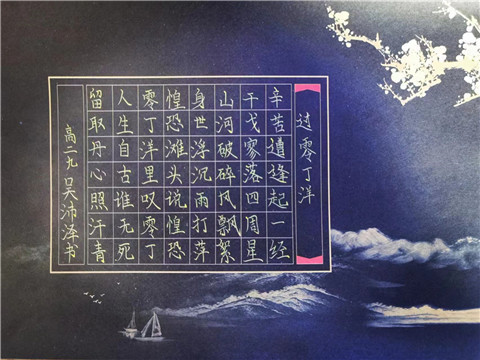 过零丁洋
辛苦遭逢起一经
干戈寥落四周星
山河破碎风飘絮
身世浮沉雨打萍
惶恐滩头说惶恐
零丁洋里叹零丁
人生自古谁无死
留取丹心照汗青
高二九 吴沛泽书